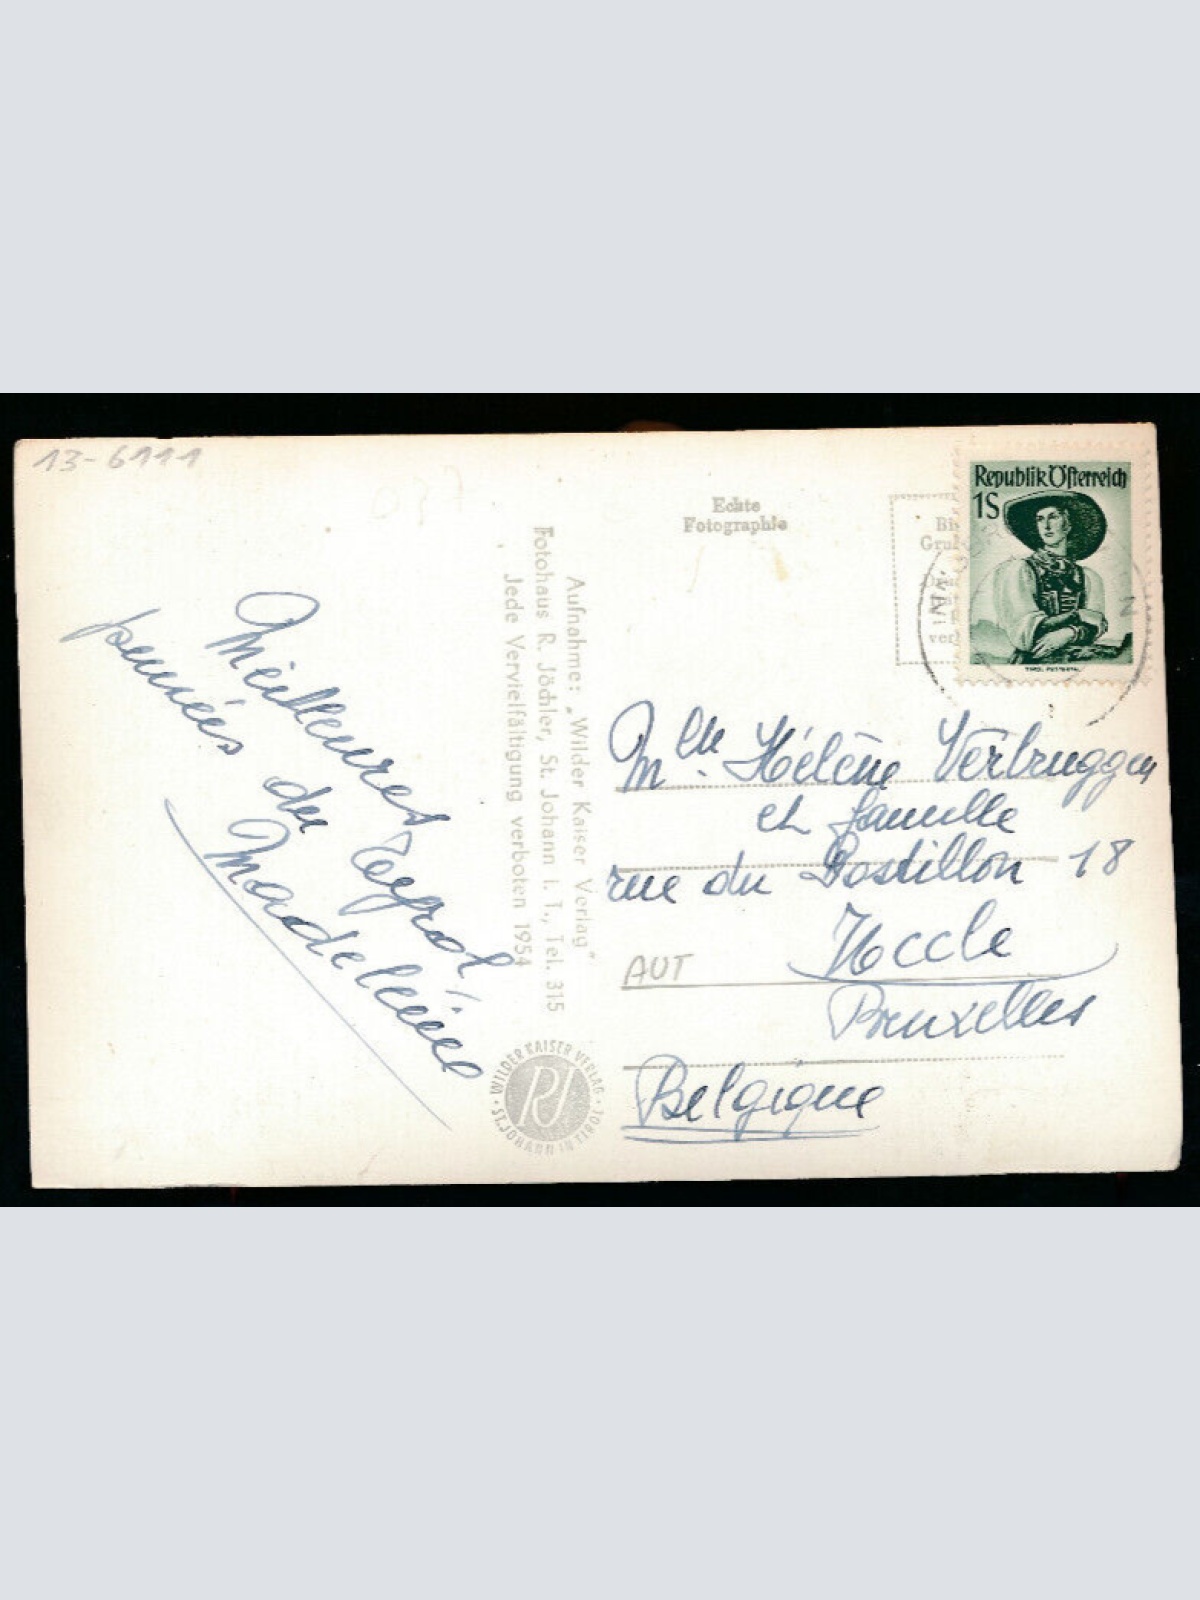 13-6111
Meilleures
pensées du Teyrol!
Madeleine
Aufnahme: „Wilder Kaiser Verlag"
Fotohaus R. Jöchler, St. Johann i. T., Tel. 315
Jede Vervielfältigung verboten 1954
WILDER KAISER VERLAG · ST. JOHANN IN TIROL ·
RJ
Echte
Fotographie
Republik Österreich
1S
Mlle. Hélène Verbruggen
et famille
rue du Postillon 18
AUT
Uccle
Bruxelles
Belgique